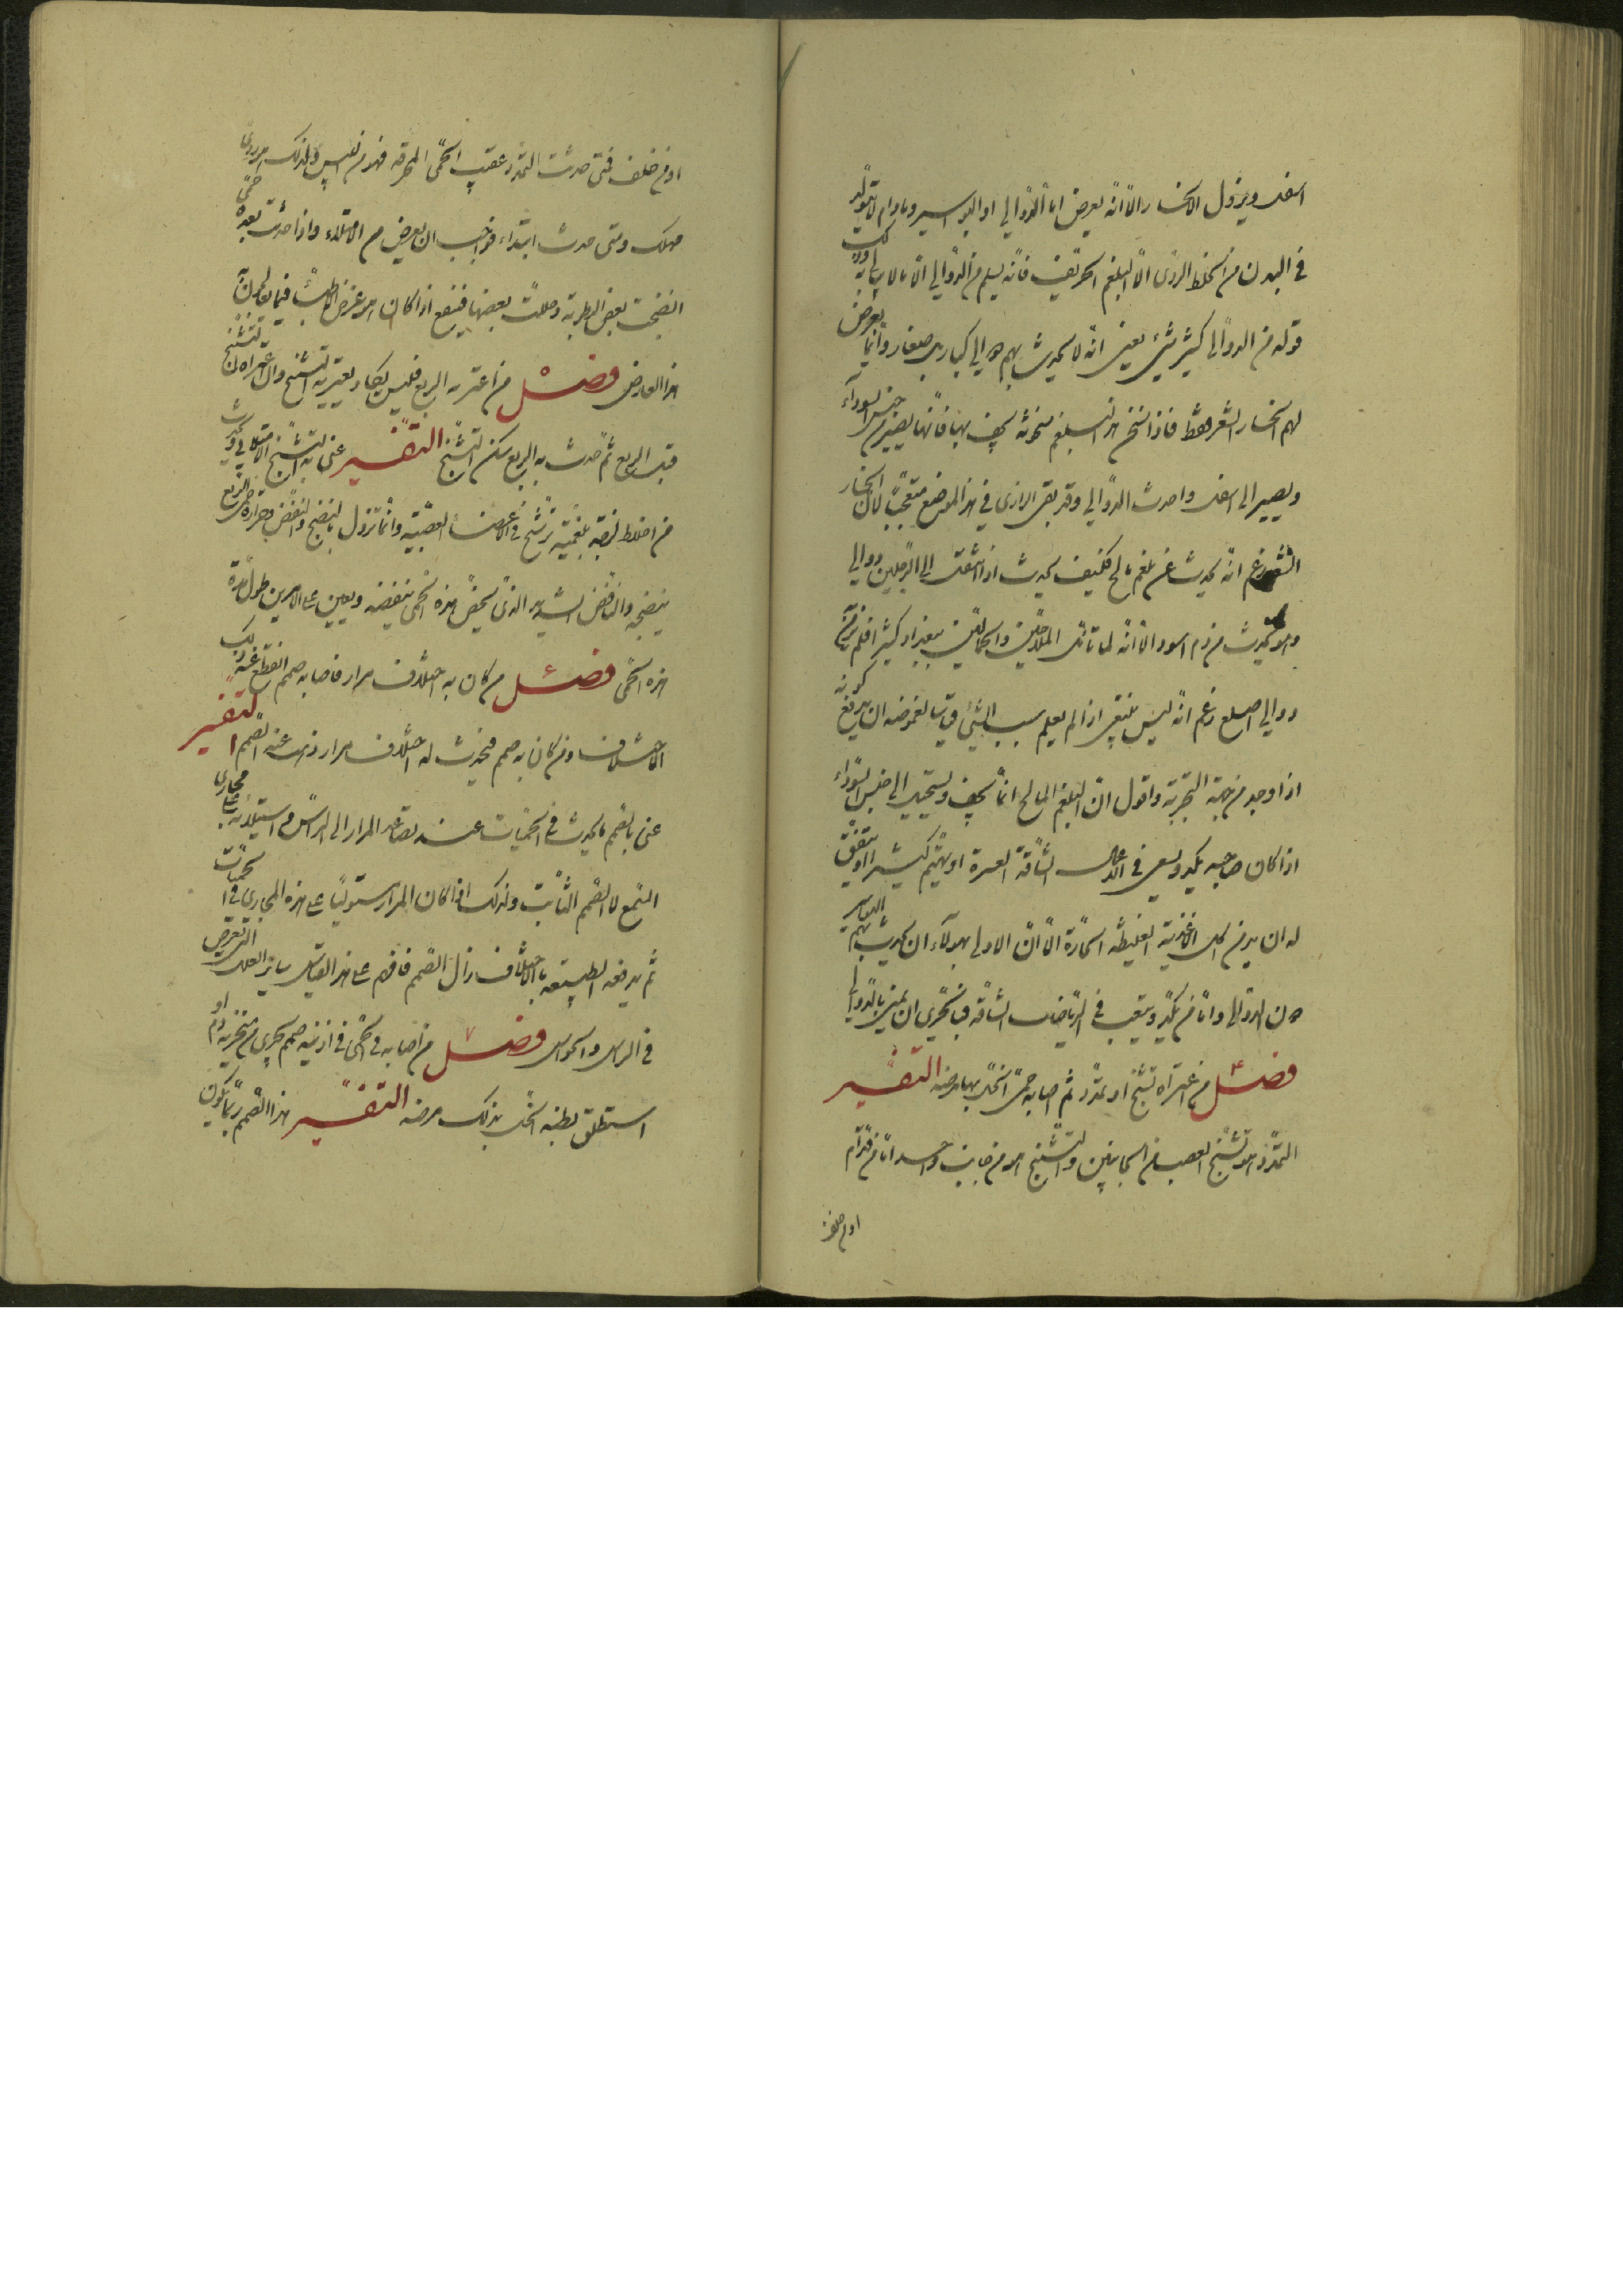 اسفل ويزول الانحسار الا انه يعرض اما الدوالي او البواسير وما دام لا يتولد
في البدن من الخلط الردى الا البلغم الحريف فانه يسلم من الدوالي الا ما لا يبالي به ولذلك
قوله من الدوالى كثير شئ يعنى انه لا يحدث بهم دوالي كبار بل صغار وانما يعرض
لهم انحسار الشعر فقط فاذا سخن هذا البلغم سخونة يجف بها فانها يصير من جنس السوداء
ويصير الى اسفل واحدث الدوالي وقد بقى الرازى في هذا الموضع متعجبا لان انحسار
الشعر زعم انه يحدث عن بلغم مالح فكيف يحدث اذا انتقل الى الرجلين دوالي
وهو يحدث من دم اسود الا انه لما تامل الملاحين والحمالين ببغداد كثيرا فلم ير بهم
دوالي اصلع زعم انه ليس ينبغى اذا لم يعلم سبب الشئ وقياسا لغموضه ان يدفع كونه
اذا وجد من جهة التجربة واقول ان البلغم المالح انما يجف ويستحيل الى جنس السوداء
اذا كان صاحبه يكد ويسعى في الاعمال الشاقة العسرة او يهتم كثيرا او يتفق
له ان يدمن اكل الاغذية الغليظة الحارة الا ان الاولى بهولاء ان يحدث بهم البواسير
دون الدوالي واما من يكد ويتعب في الرياضات الشاقة فبالحرى ان يمتحن بالدوالي
فصل ٤ من اعتراه تشنج او تمدد ثم اصابه حمى انحل بها مرضه التفسير
التمدد هو تشنج العصب من الجانبين والتشنج هو من جانب واحد اما من قدام
او من خلف
او من خلف فمتى حدث التمدد عقيب الحمى المحرقة فهو من اليبس ولذلك هو ردى
مهلك ومتى حدث ابتداء فواجب ان يعرض من الامتلاء واذا حدث بعده حمى
انضجت بعض الرطوبة وحللت بعضها فتنفع اذا كان هو غرض الاطباء فيما يعالجون به
هذا العارض فصل ٥ من اعتريه الربع فليس يكاد يعتريه التشنج وان اعتراه التشنج
قبل الربع ثم حدث به الربع سكن التشنج التفسير عنى به التشنج الامتلائى ويحدث
من اخلاط لزجة بلغمية ترشح في الاعضاء العصبية وانما تزول بالنضج والنفض وحرارة حمى الربع
ينضجه والنافض الشديد الذى يخص هذه الحمى ينفضه ويعين على الامرين طول مدة
هذه الحمى فصل ٦ من كان به اختلاف مرار فاصابه صمم انقطع عنه ذلك
الاختلاف ومن كان به صمم فيحدث له اختلاف مرار ذهب عنه الصمم التفسير
عنى بالصمم ما يحدث في الحميات عند تصاعد المرار الى الراس من استيلائه على مجارى
السمع لا الصمم الثابت ولذلك اذا كان المرار مستوليا على هذه المجارى في الحميات
ثم يدفعه الطبيعة بالاختلاف زال الصمم فافهم على هذا القياس ساير العلل التى تعرض
في الراس والحواس فصل ٧ من اصابه في الحمى في اذنيه صمم فجرى من منخريه دم او
استطلق بطنه انحل بذلك مرضه التفسير هذا الصمم ربما يكون